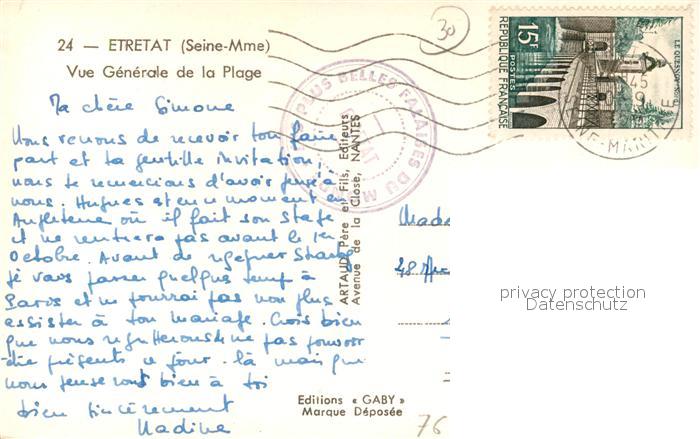 24 — ETRETAT (Seine-Mme)
Vue Générale de la Plage
30
15F
POSTES
REPUBLIQUE FRANÇAISE
LE QUESNOY-NORD
PLUS BELLES FALAISES DU
Ma chère Simone
Nous venons de recevoir ton faire
part et ta gentille invitation,
nous te remercions d'avoir pensé à
nous. Hugues est en ce moment en
Angleterre où il fait son stage
et ne rentrera pas avant le 1er
Octobre. Avant de regagner
je vais passer quelque temps à
Paris et ne pourrai pas non plus
assister à ton mariage. Crois bien
que nous regretterons de ne pas pouvoir
être présents ce jour-là mais que
nous penserons bien à toi
bien sincèrement
Nadine
ARTAUD Père et Fils, Editeurs
Avenue de la Close, NANTES
Mada
48
privacy protection
Datenschutz
Editions « GABY »
Marque Déposée
76